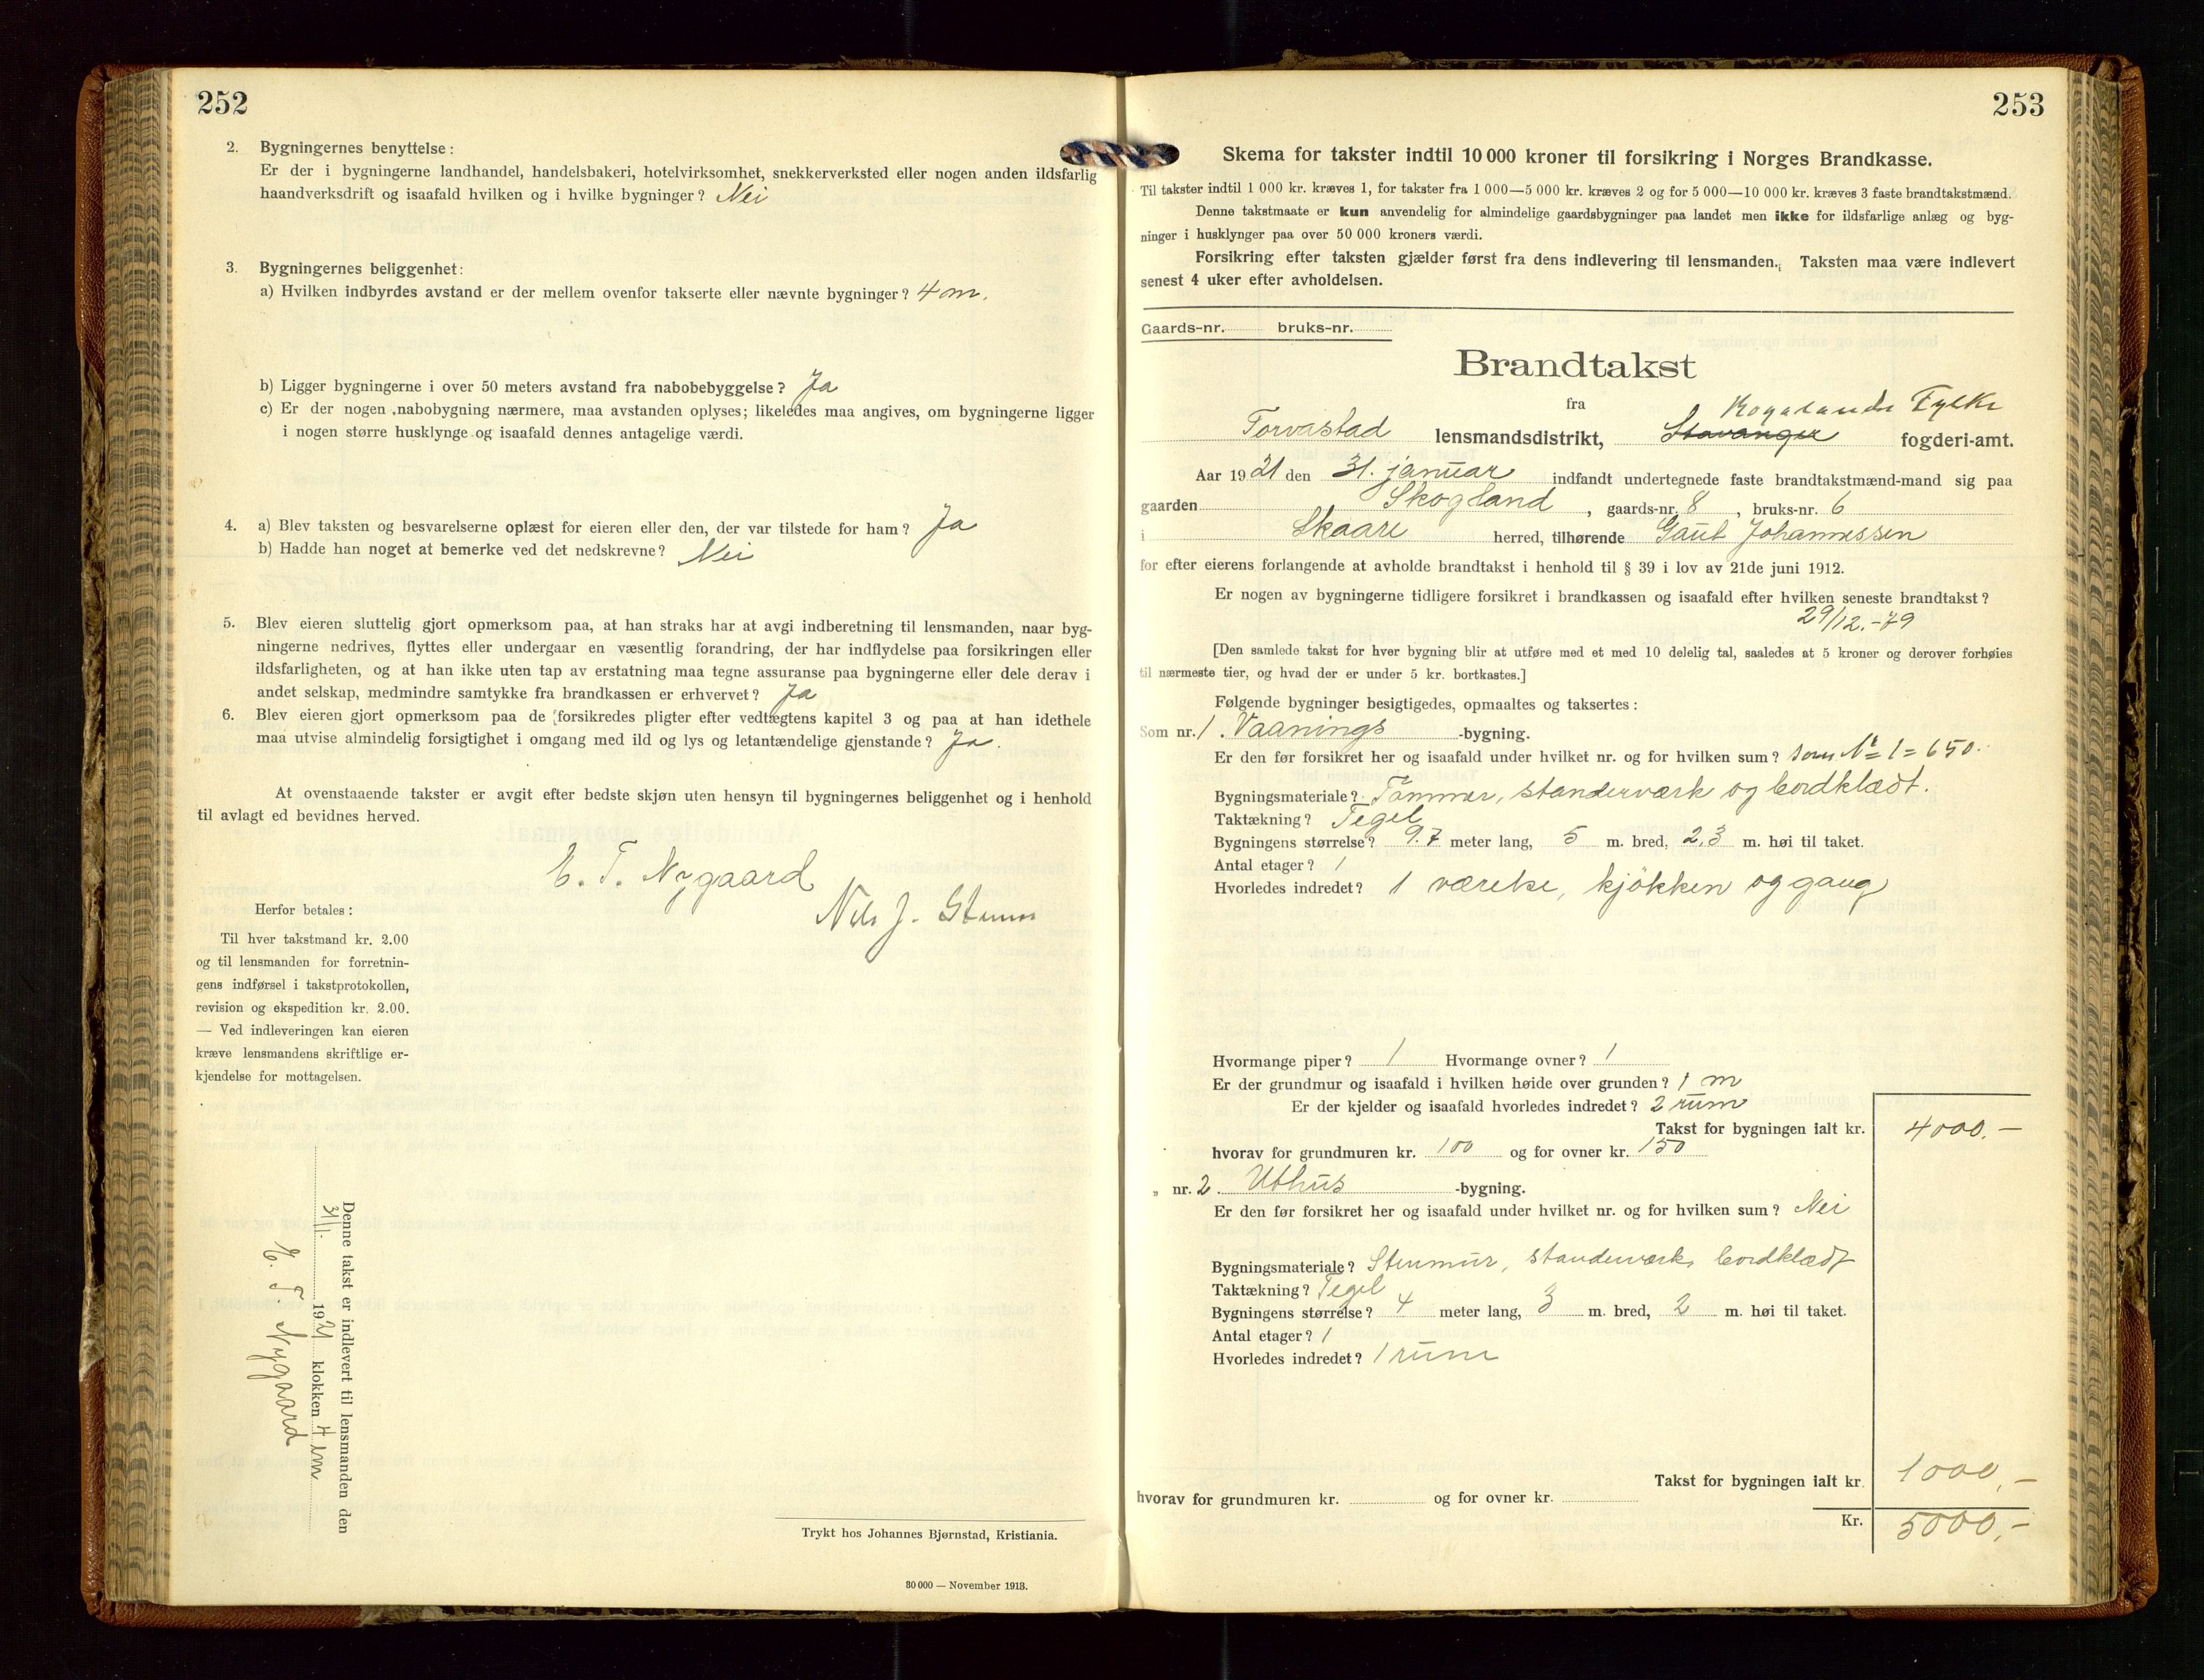 252
2. Bygningernes benyttelse:
Er der i bygningerne landhandel, handelsbakeri, hotelvirksomhet, snekkerverksted eller nogen anden ildsfarlig
haandverksdrift og isaafald hvilken og i hvilke bygninger? Nei
3. Bygningernes beliggenhet:
a) Hvilken indbyrdes avstand er der mellem ovenfor takserte eller nævnte bygninger? 4 m.
b) Ligger bygningerne i over 50 meters avstand fra nabobebyggelse? Ja
c) Er der nogen nabobygning nærmere, maa avstanden oplyses; likeledes maa angives, om bygningerne ligger
i nogen større husklynge og isaafald dennes antagelige værdi.
4. a) Blev taksten og besvarelserne oplæst for eieren eller den, der var tilstede for ham? Ja
b) Hadde han noget at bemerke ved det nedskrevne? Nei
5. Blev eieren sluttelig gjort opmerksom paa, at han straks har at avgi indberetning til lensmanden, naar byg-
ningerne nedrives, flyttes eller undergaar en væsentlig forandring, der har indflydelse paa forsikringen eller
ildsfarligheten, og at han ikke uten tap av erstatning maa tegne assuranse paa bygningerne eller dele derav i
andet selskap, medmindre samtykke fra brandkassen er erhvervet? Ja
6. Blev eieren gjort opmerksom paa de forsikredes pligter efter vedtægtens kapitel 3 og paa at han idethele
maa utvise almindelig forsigtighet i omgang med ild og lys og letantændelige gjenstande? Ja.
At ovenstaaende takster er avgit efter bedste skjøn uten hensyn til bygningernes beliggenhet og i henhold
til avlagt ed bevidnes herved.
E. T. Nygaard
Nils J.
Herfor betales:
Til hver takstmand kr. 2.00
og til lensmanden for forretnin-
gens indførsel i takstprotokollen,
revision og ekspedition kr. 2.00.
— Ved indleveringen kan eieren
kræve lensmandens skriftlige er-
kjendelse for mottagelsen.
Denne takst er indlevert til lensmanden den
31/1. 1921 klokken 4 em
E. T. Nygaard
Trykt hos Johannes Bjørnstad, Kristiania.
30 000 — November 1913.
253
Skema for takster indtil 10 000 kroner til forsikring i Norges Brandkasse.
Til takster indtil 1 000 kr. kræves 1, for takster fra 1 000—5 000 kr. kræves 2 og for 5 000—10 000 kr. kræves 3 faste brandtakstmænd.
Denne takstmaate er kun anvendelig for almindelige gaardsbygninger paa landet men ikke for ildsfarlige anlæg og byg-
ninger i husklynger paa over 50 000 kroners værdi.
Forsikring efter taksten gjælder først fra dens indlevering til lensmanden. Taksten maa være indlevert
senest 4 uker efter avholdelsen.
Gaards-nr. bruks-nr.
Brandtakst
fra
Rogalands Fylke
Torvastad lensmandsdistrikt, Stavanger fogderi-amt.
Aar 1921 den 31. januar indfandt undertegnede faste brandtakstmænd-mand sig paa
gaarden Skogland, gaards-nr. 8, bruks-nr. 6
i Skaare herred, tilhørende Gaut Johannessen
for efter eierens forlangende at avholde brandtakst i henhold til § 39 i lov av 21de juni 1912.
Er nogen av bygningerne tidligere forsikret i brandkassen og isaafald efter hvilken seneste brandtakst?
29/12.-79
[Den samlede takst for hver bygning blir at utføre med et med 10 delelig tal, saaledes at 5 kroner og derover forhøies
til nærmeste tier, og hvad der er under 5 kr. bortkastes.]
Følgende bygninger besigtigedes, opmaaltes og taksertes:
Som nr. 1. Vaanings-bygning.
Er den før forsikret her og isaafald under hvilket nr. og for hvilken sum? som № 1 = 650.
Bygningsmateriale? Tømmer, standerværk og bordklædt.
Taktækning? Tegel
Bygningens størrelse? 9.7 meter lang, 5 m. bred, 2,3 m. høi til taket.
Antal etager? 1
Hvorledes indredet? 1 værelse, kjøkken og gang
Hvormange piper? 1 Hvormange ovner? 1
Er der grundmur og isaafald i hvilken høide over grunden? 1 m
Er der kjelder og isaafald hvorledes indredet? 2 rum
Takst for bygningen ialt kr. 4000.—
hvorav for grundmuren kr. 100 og for ovner kr. 150
„ nr. 2. Uthus-bygning.
Er den før forsikret her og isaafald under hvilket nr. og for hvilken sum? Nei
Bygningsmateriale? Stenmur, standerværk, bordklædt
Taktækning? Tegel
Bygningens størrelse? 4 meter lang, 3 m. bred, 2 m. høi til taket.
Antal etager? 1
Hvorledes indredet? 1 rum
Takst for bygningen ialt kr. 1000,—
hvorav for grundmuren kr. og for ovner kr.
Kr. 5000,—